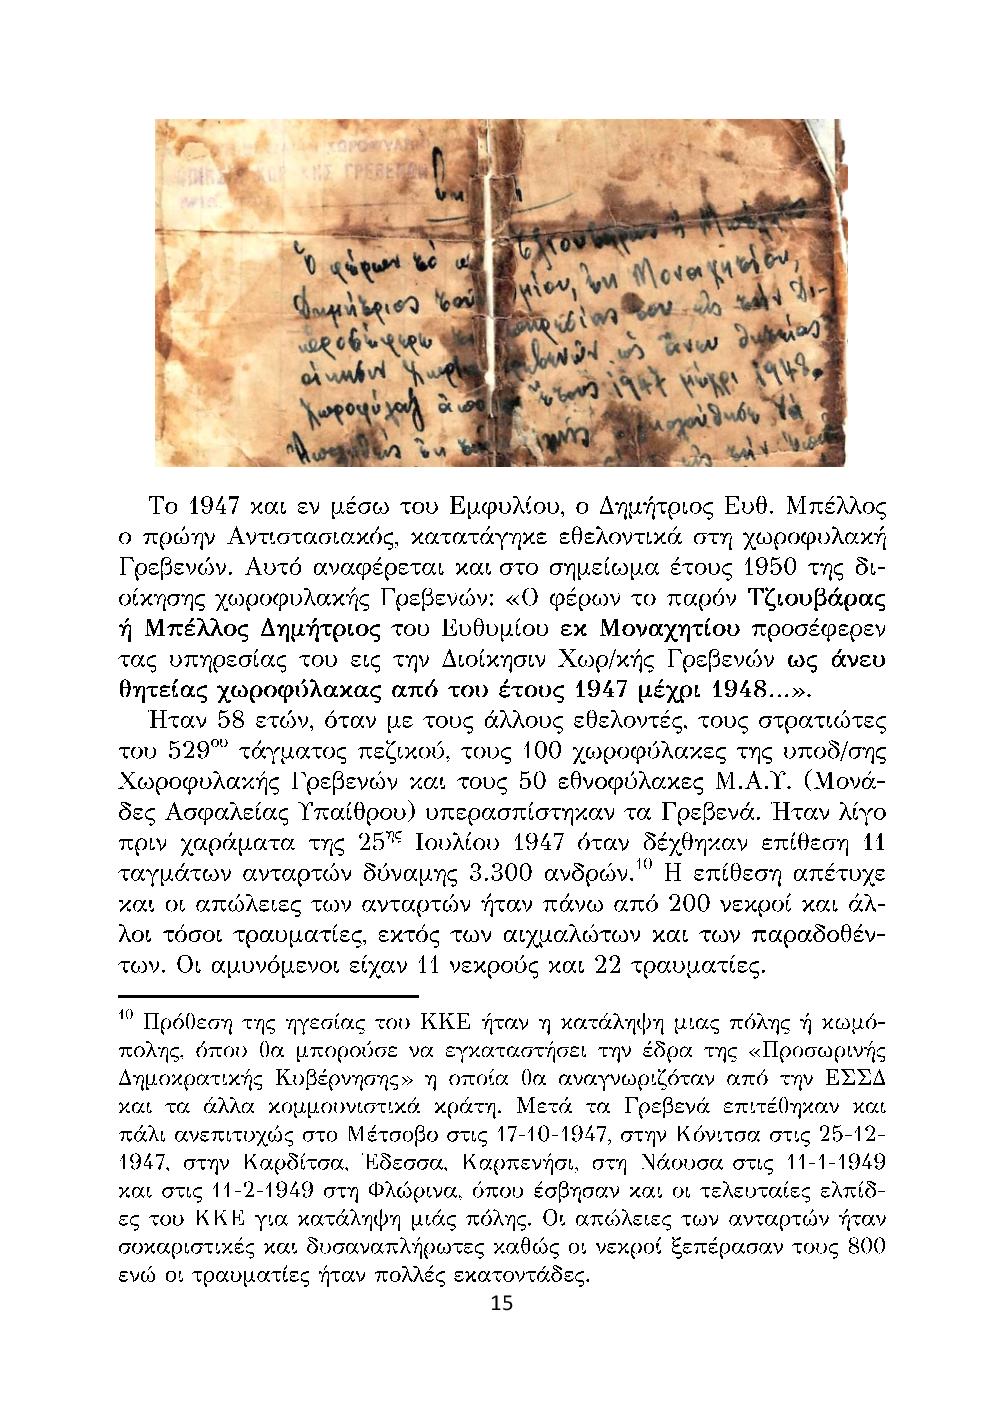 ΧΩΡ ΚΗΣ ΓΡΕΒΕΝΩΝ
Ὁ φέρων τὸ Τζιουβάρας ἢ Μπέλλος
Δημήτριος τοῦ μίου, ἐκ Μοναχητίου,
προσέφερε του εἰς τὴν Δι-
οίκησιν Χωρ βενῶν ὡς ἄνευ θητείας
χωροφύλαξ ἀπὸ ἔτους 1947 μέχρι 1948.
Το 1947 και εν μέσω του Εμφυλίου, ο Δημήτριος Ευθ. Μπέλλος
ο πρώην Αντιστασιακός, κατατάγηκε εθελοντικά στη χωροφυλακή
Γρεβενών. Αυτό αναφέρεται και στο σημείωμα έτους 1950 της δι-
οίκησης χωροφυλακής Γρεβενών: «Ο φέρων το παρόν Τζιουβάρας
ή Μπέλλος Δημήτριος του Ευθυμίου εκ Μοναχητίου προσέφερεν
τας υπηρεσίας του εις την Διοίκησιν Χωρ/κής Γρεβενών ως άνευ
θητείας χωροφύλακας από του έτους 1947 μέχρι 1948...».
Ήταν 58 ετών, όταν με τους άλλους εθελοντές, τους στρατιώτες
του 529ου τάγματος πεζικού, τους 100 χωροφύλακες της υποδ/σης
Χωροφυλακής Γρεβενών και τους 50 εθνοφύλακες Μ.Α.Υ. (Μονά-
δες Ασφαλείας Υπαίθρου) υπερασπίστηκαν τα Γρεβενά. Ήταν λίγο
πριν χαράματα της 25ης Ιουλίου 1947 όταν δέχθηκαν επίθεση 11
ταγμάτων ανταρτών δύναμης 3.300 ανδρών.10 Η επίθεση απέτυχε
και οι απώλειες των ανταρτών ήταν πάνω από 200 νεκροί και άλ-
λοι τόσοι τραυματίες, εκτός των αιχμαλώτων και των παραδοθέν-
των. Οι αμυνόμενοι είχαν 11 νεκρούς και 22 τραυματίες.
10 Πρόθεση της ηγεσίας του ΚΚΕ ήταν η κατάληψη μιας πόλης ή κωμό-
πολης, όπου θα μπορούσε να εγκαταστήσει την έδρα της «Προσωρινής
Δημοκρατικής Κυβέρνησης» η οποία θα αναγνωριζόταν από την ΕΣΣΔ
και τα άλλα κομμουνιστικά κράτη. Μετά τα Γρεβενά επιτέθηκαν και
πάλι ανεπιτυχώς στο Μέτσοβο στις 17-10-1947, στην Κόνιτσα στις 25-12-
1947, στην Καρδίτσα, Έδεσσα, Καρπενήσι, στη Νάουσα στις 11-1-1949
και στις 11-2-1949 στη Φλώρινα, όπου έσβησαν και οι τελευταίες ελπίδ-
ες του ΚΚΕ για κατάληψη μιάς πόλης. Οι απώλειες των ανταρτών ήταν
σοκαριστικές και δυσαναπλήρωτες καθώς οι νεκροί ξεπέρασαν τους 800
ενώ οι τραυματίες ήταν πολλές εκατοντάδες.
15